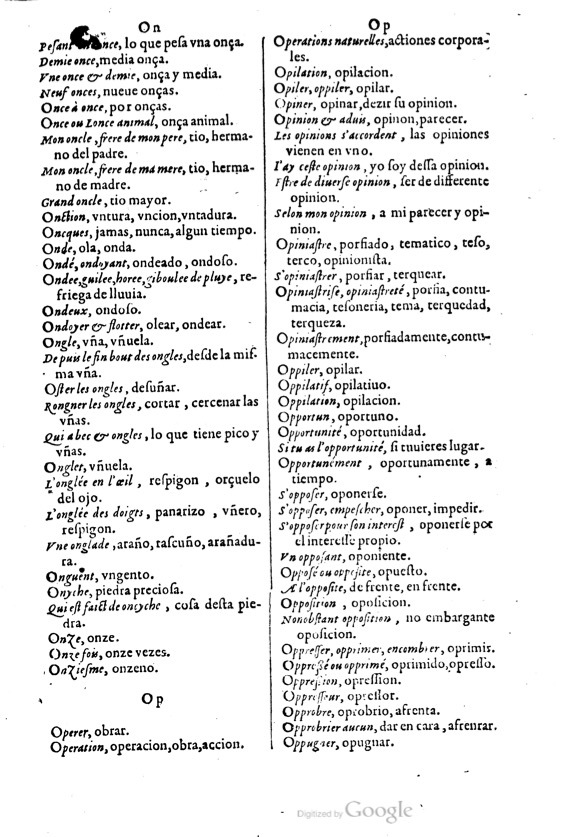 On
Peſant once, lo que peſa vna onça.
Demie once, media onça.
Vne once & demie, onça y media.
Neuf onces, nueue onças.
Once à once, por onças.
Once ou Lonce animal, onça animal.
Mon oncle, frere de mon pere, tio, herma-
no del padre.
Mon oncle, frere de ma mere, tio, herma-
no de madre.
Grand oncle, tio mayor.
Onction, vntura, vncion, vntadura.
Oncques, jamas, nunca, algun tiempo.
Onde, ola, onda.
Ondé, ondoyant, ondeado, ondoſo.
Ondee, guilee, horee, giboulee de pluye, re-
friega de lluuia.
Ondeux, ondoſo.
Ondoyer & flotter, olear, ondear.
Ongle, vña, vñuela.
Depuis le fin bout des ongles, deſde la miſ-
ma vña.
Oſter les ongles, deſuñar.
Rongner les ongles, cortar, cercenar las
vñas.
Qui a bec & ongles, lo que tiene pico y
vñas.
Onglet, vñuela.
L'onglée en l'œil, reſpigon, orçuelo
del ojo.
L'onglée des doigts, panarizo, vñero,
reſpigon.
Vne onglade, araño, raſcuño, arañadu-
ra.
Onguent, vngento.
Onyche, piedra precioſa.
Qui eſt faict de onyche, coſa deſta pie-
dra.
Onze, onze.
Onze fois, onze vezes.
Onzieſme, onzeno.
Op
Operer, obrar.
Operation, operacion, obra, accion.
Op
Operations naturelles, actiones corpora-
les.
Opilation, opilacion.
Opiler, oppiler, opilar.
Opiner, opinar, dezir ſu opinion.
Opinion & aduis, opinon, parecer.
Les opinions s'accordent, las opiniones
vienen en vno.
I'ay ceſte opinion, yo ſoy deſſa opinion.
Eſtre de diuerſe opinion, ſer de differente
opinion.
Selon mon opinion, a mi parecer y opi-
nion.
Opiniaſtre, porfiado, tematico, teſo,
terco, opinioniſta.
S'opiniaſtrer, porfiar, terquear.
Opiniaſtriſe, opiniaſtreté, porfia, contu-
macia, teſoneria, tema, terquedad,
terqueza.
Opiniaſtrement, porfiadamente, contu-
macemente.
Oppiler, opilar.
Oppilatif, opilatiuo.
Oppilation, opilacion.
Opportun, oportuno.
Opportunité, oportunidad.
Si tu as l'opportunité, ſi tuuieres lugar.
Opportunement, oportunamente, a
tiempo.
S'oppoſer, oponerſe.
S'oppoſer, empeſcher, oponer, impedir.
S'oppoſer pour ſon intereſt, oponerſe por
el intereſſe propio.
Vn oppoſant, oponiente.
Oppoſé ou oppoſite, opueſto.
A l'oppoſite, de frente, en frente.
Oppoſition, opoſicion.
Nonobſtant oppoſition, no embargante
opoſicion.
Oppreſſer, opprimer, encombrer, oprimir.
Oppreßé ou opprimé, oprimido, opreſſo.
Oppreſſion, opreſſion.
Oppreſſeur, opreſſor.
Opprobre, oprobrio, afrenta.
Opprobrier aucun, dar en cara, afrentar.
Oppugner, opugnar.
Digitized by Google